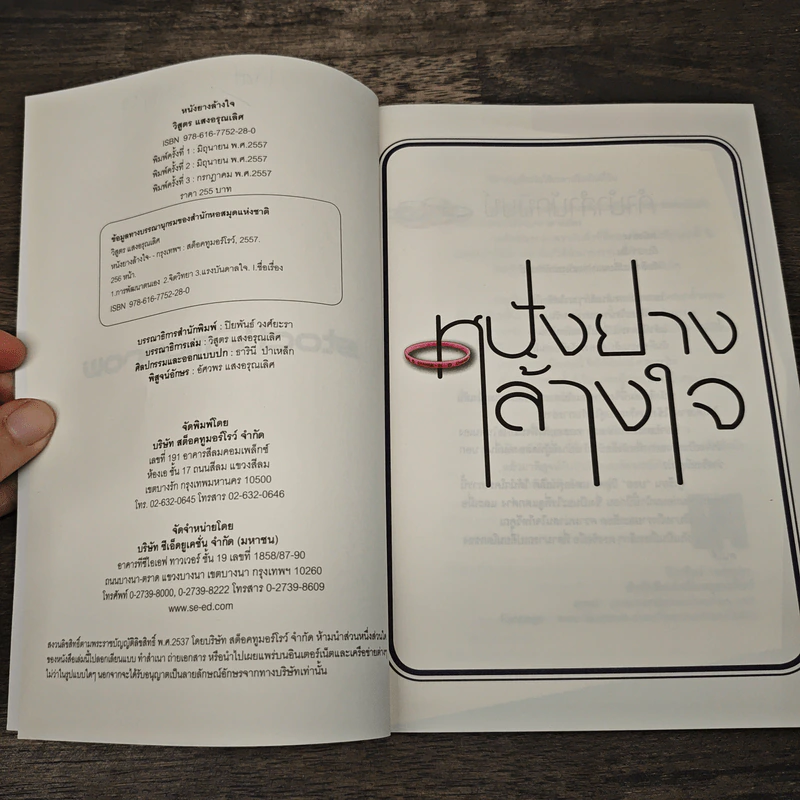 หนังยางล้างใจ
วิสูตร แสงอรุณเลิศ
ISBN 978-616-7752-28-0
พิมพ์ครั้งที่ 1 : มิถุนายน พ.ศ.2557
พิมพ์ครั้งที่ 2 : มิถุนายน พ.ศ.2557
พิมพ์ครั้งที่ 3 : กรกฎาคม พ.ศ.2557
ราคา 255 บาท
ข้อมูลทางบรรณานุกรมของสำนักหอสมุดแห่งชาติ
วิสูตร แสงอรุณเลิศ
หนังยางล้างใจ.- กรุงเทพฯ : สต็อคทูมอร์โรว์, 2557.
256 หน้า.
1.การพัฒนาตนเอง 2.จิตวิทยา 3.แรงบันดาลใจ. I.ชื่อเรื่อง
ISBN 978-616-7752-28-0
บรรณาธิการสำนักพิมพ์ : ปิยพันธ์ วงศ์ยะรา
บรรณาธิการเล่ม : วิสูตร แสงอรุณเลิศ
ศิลปกรรมและออกแบบปก : ธารินี ป่าเหล็ก
พิสูจน์อักษร : อัศวพร แสงอรุณเลิศ
จัดพิมพ์โดย
บริษัท สต็อคทูมอร์โรว์ จำกัด
เลขที่ 191 อาคารสีลมคอมเพล็กซ์
ห้องเอ ชั้น 17 ถนนสีลม แขวงสีลม
เขตบางรัก กรุงเทพมหานคร 10500
โทร. 02-632-0645 โทรสาร 02-632-0646
จัดจำหน่ายโดย
บริษัท ซีเอ็ดยูเคชั่น จำกัด (มหาชน)
อาคารทีซีไอเอฟ ทาวเวอร์ ชั้น 19 เลขที่ 1858/87-90
ถนนบางนา-ตราด แขวงบางนา เขตบางนา กรุงเทพฯ 10260
โทรศัพท์ 0-2739-8000, 0-2739-8222 โทรสาร 0-2739-8609
www.se-ed.com
สงวนลิขสิทธิ์ตามพระราชบัญญัติลิขสิทธิ์ พ.ศ.2537 โดยบริษัท สต็อคทูมอร์โรว์ จำกัด ห้ามนำส่วนหนึ่งส่วนใด
ของหนังสือเล่มนี้ไปลอกเลียนแบบ ทำสำเนา ถ่ายเอกสาร หรือนำไปเผยแพร่บนอินเตอร์เน็ตและเครือข่ายต่างๆ
ไม่ว่าในรูปแบบใดๆ นอกจากจะได้รับอนุญาตเป็นลายลักษณ์อักษรจากทางบริษัทเท่านั้น
หนังยาง
ล้างใจ